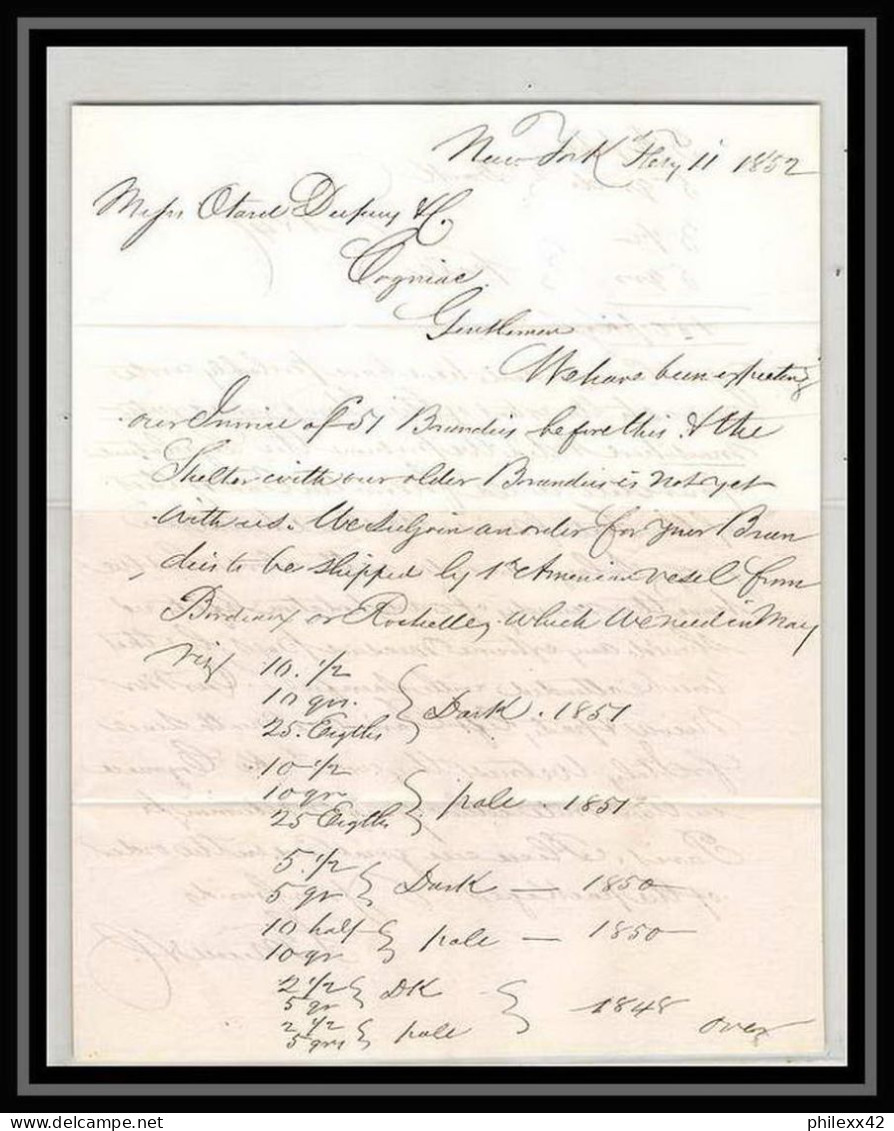 New York Feby 11 1852
Messrs Otard Dupuy & Co.
Cogniac
Gentlemen
We have been expecting
our Invoice of 51 Brandies before this & the
Shelter with our older Brandies is not yet
with us. We subjoin an order for your Bran
dies to be shipped by 1st American vesel from
Bordeaux or Rochelle, which we need in May
viz
10. 1/2
10 qrs. } Dark . 1851
25. Eigths
10 1/2
10 qr } pale . 1851
25 Eigths
5. 1/2
5 qr } Dark — 1850
10 half
10 qr } pale — 1850
2 1/2
5 qr } DK
2 1/2 } 1848
5 qrs } pale
over
delcampe.net
philexx42